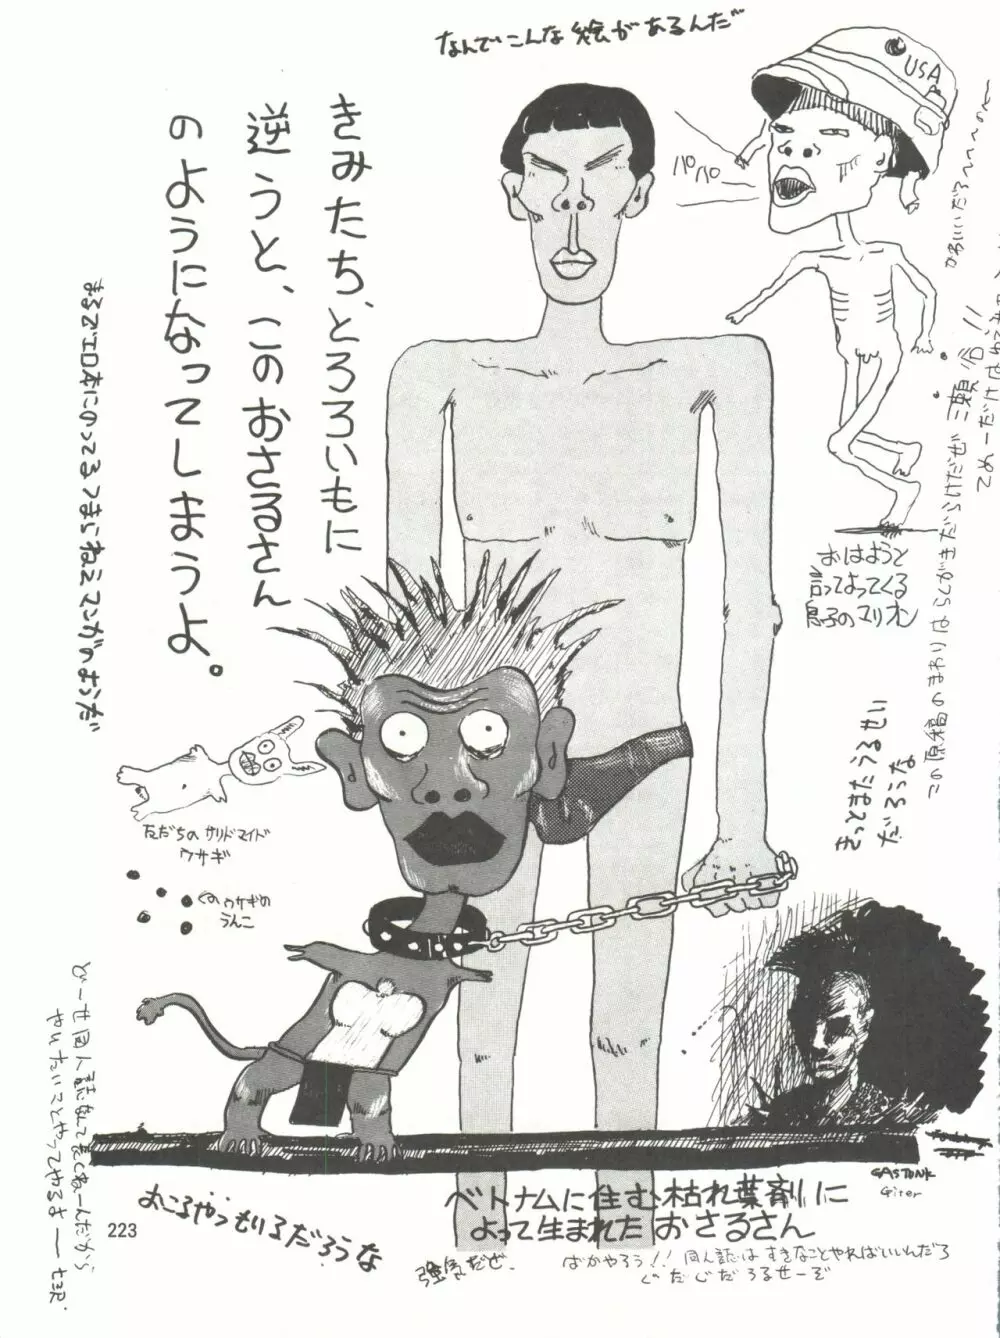 なんでこんな絵があるんだ
USA
パパパ
きみたち、とろろいもに
逆うと、このおさるさん
のようになってしまうよ。
まるでエロ本にのってるつまらねえマンガのようだ
おはようと
言ってよってくる
息子のマリオン
この原稿のまわりはらくがきだらけだぜ
きっとまたうるせい
だろうな
友だちのサリドマイド
ウサギ
ウサギの
うんこ
どーせ同人誌なんて
やりたいことやってやるよ
GASTUNK
Giter
ベトナムに住む枯れ葉剤に
よって生まれたおさるさん
おこるやつもいるだろうな
強気だぜ.
ばかやろう!! 同人誌はすきなことやればいいんだろ
ぐだぐだうるせーぞ
223